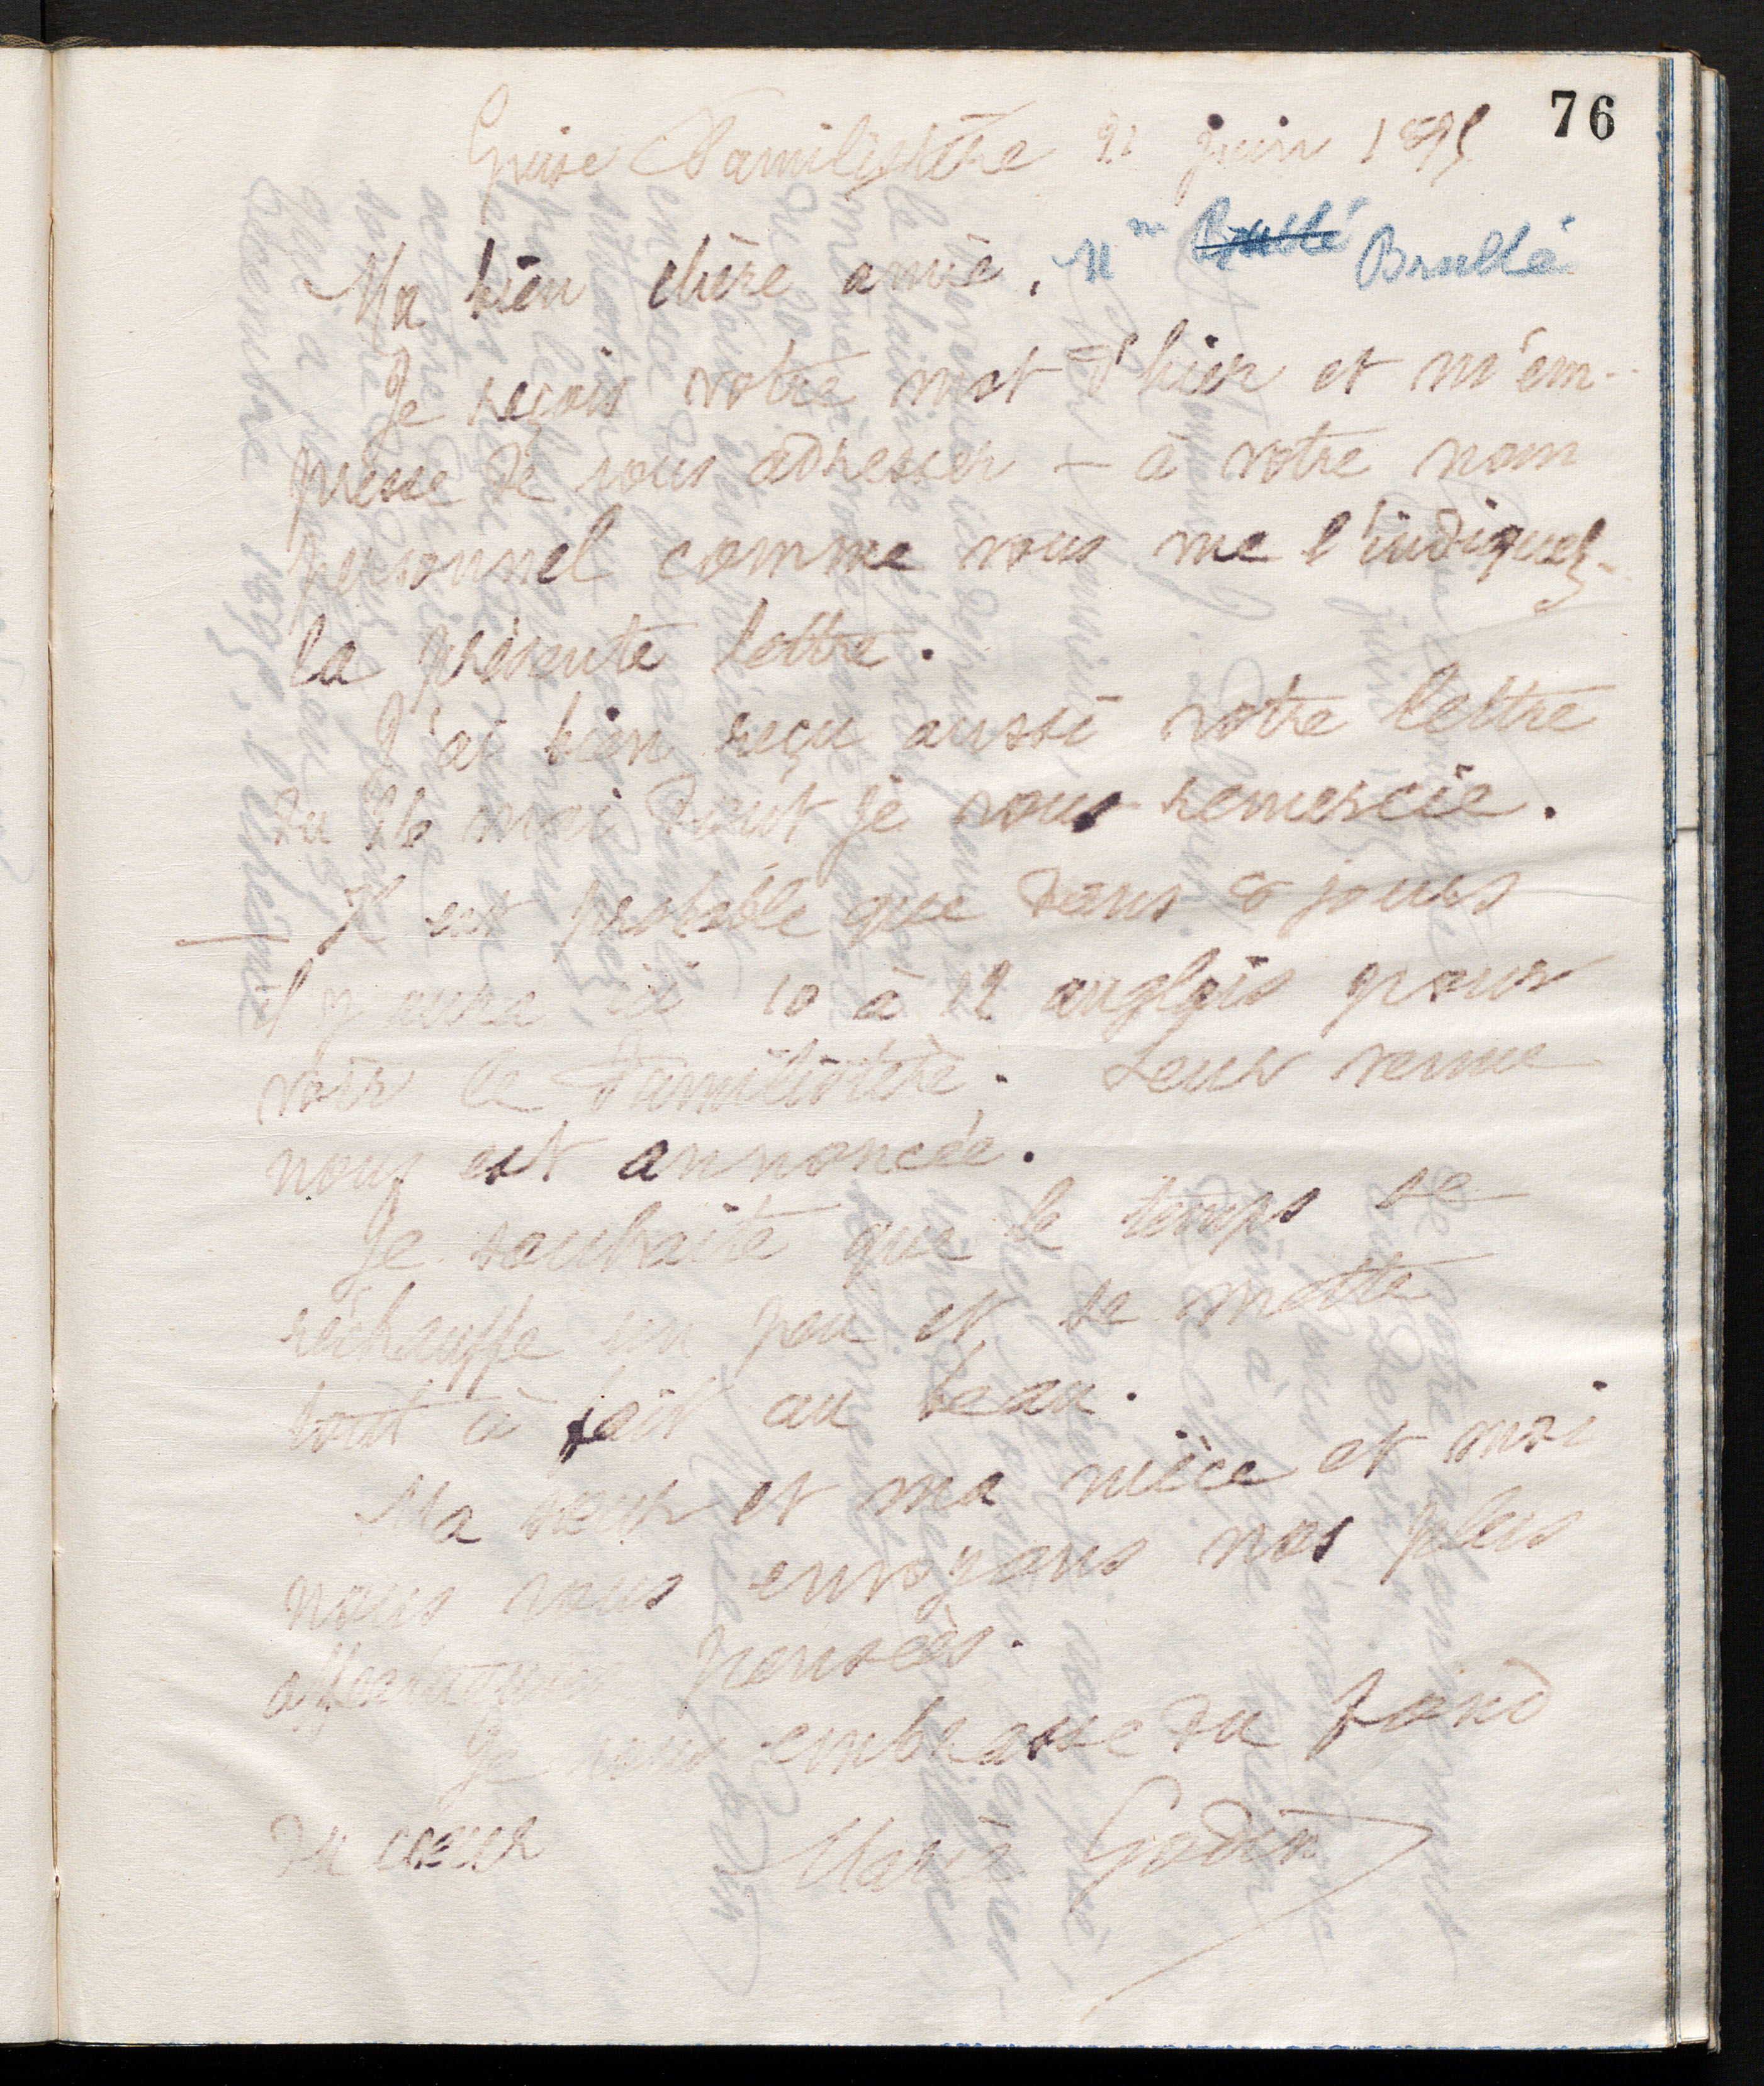 76
Guise Familistère 21 juin 1895
Ma bien chère amie, Mme Brullé Brullé
Je reçois votre mot d'hier et m'em-
presse de vous adresser - à votre nom
personnel comme vous me l'indiquez -
la présente lettre.
J'ai bien reçu aussi votre lettre
du 26 mai dont je vous remercie.
Il est probable que dans 8 jours
il y aura ici 10 à 12 anglais pour
voir le Familistère. Leur venue
nous est annoncée.
Je souhaite que le temps se
réchauffe un peu et se mette
tout à fait au beau.
Ma sœur et ma nièce et moi
nous vous envoyons nos plus
affectueuses pensées.
Je vous embrasse du fond
du cœur Marie Godin